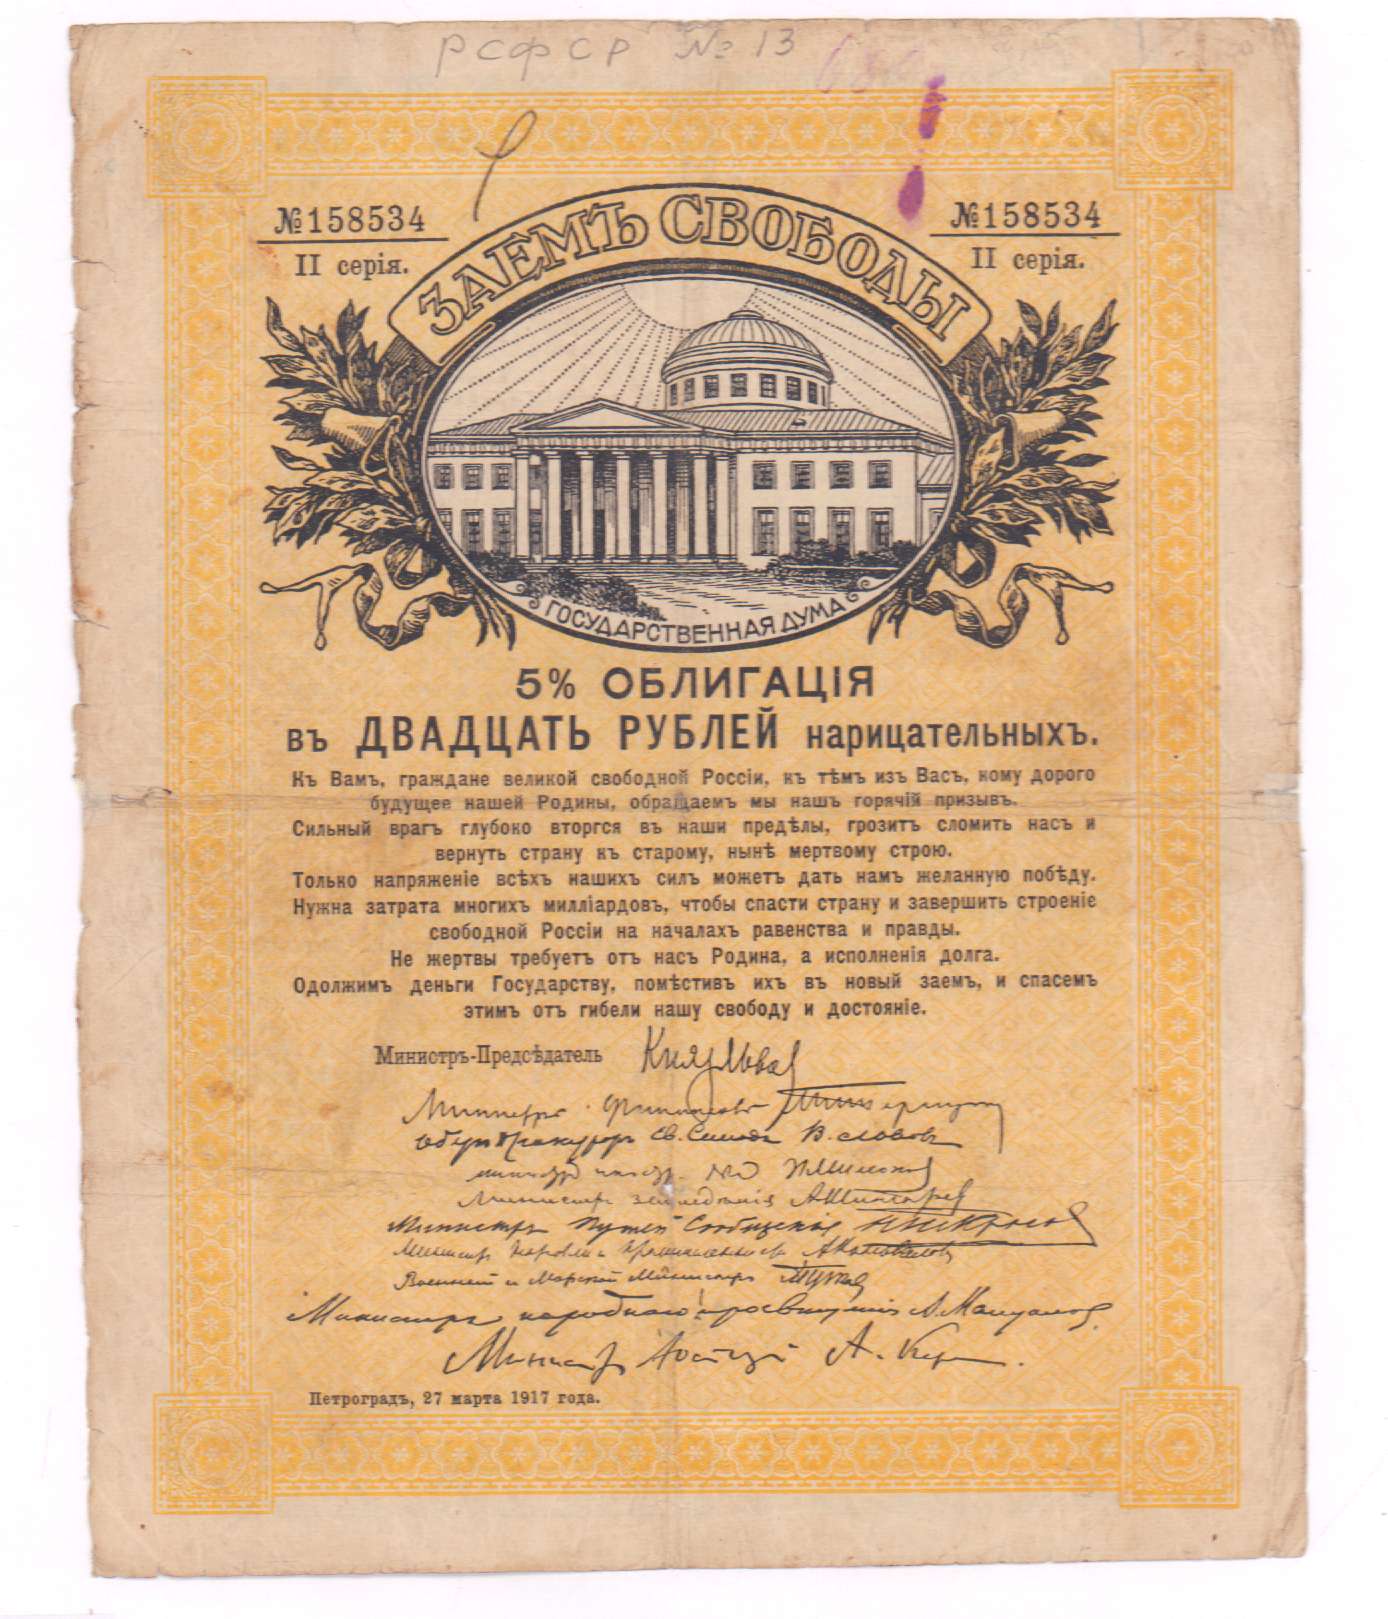 РСФСР № 13
№158534
II серія.
№158534
II серія.
ЗАЕМЪ СВОБОДЫ
ГОСУДАРСТВЕННАЯ ДУМА
5% ОБЛИГАЦІЯ
въ ДВАДЦАТЬ РУБЛЕЙ нарицательныхъ.
Къ Вамъ, граждане великой свободной Россіи, къ тѣмъ изъ Васъ, кому дорого
будущее нашей Родины, обращаемъ мы нашъ горячій призывъ.
Сильный врагъ глубоко вторгся въ наши предѣлы, грозитъ сломить насъ и
вернуть страну къ старому, нынѣ мертвому строю.
Только напряженіе всѣхъ нашихъ силъ можетъ дать намъ желанную побѣду.
Нужна затрата многихъ милліардовъ, чтобы спасти страну и завершить строеніе
свободной Россіи на началахъ равенства и правды.
Не жертвы требуетъ отъ насъ Родина, а исполненія долга.
Одолжимъ деньги Государству, помѣстивъ ихъ въ новый заемъ, и спасемъ
этимъ отъ гибели нашу свободу и достояніе.
Министръ-Предсѣдатель Князь Львов
Министръ Финансовъ
Обер Прокуроръ Св. Синода В. Львовъ
Министръ земледѣлія А Шингарев
Министръ Путей Сообщенія
Министръ Торговли и Промышленности А Коноваловъ
Военный и Морской Министръ
Министръ народнаго просвѣщенія А. Мануилов.
Министръ Юстиціи А. Кер
Петроградъ, 27 марта 1917 года.